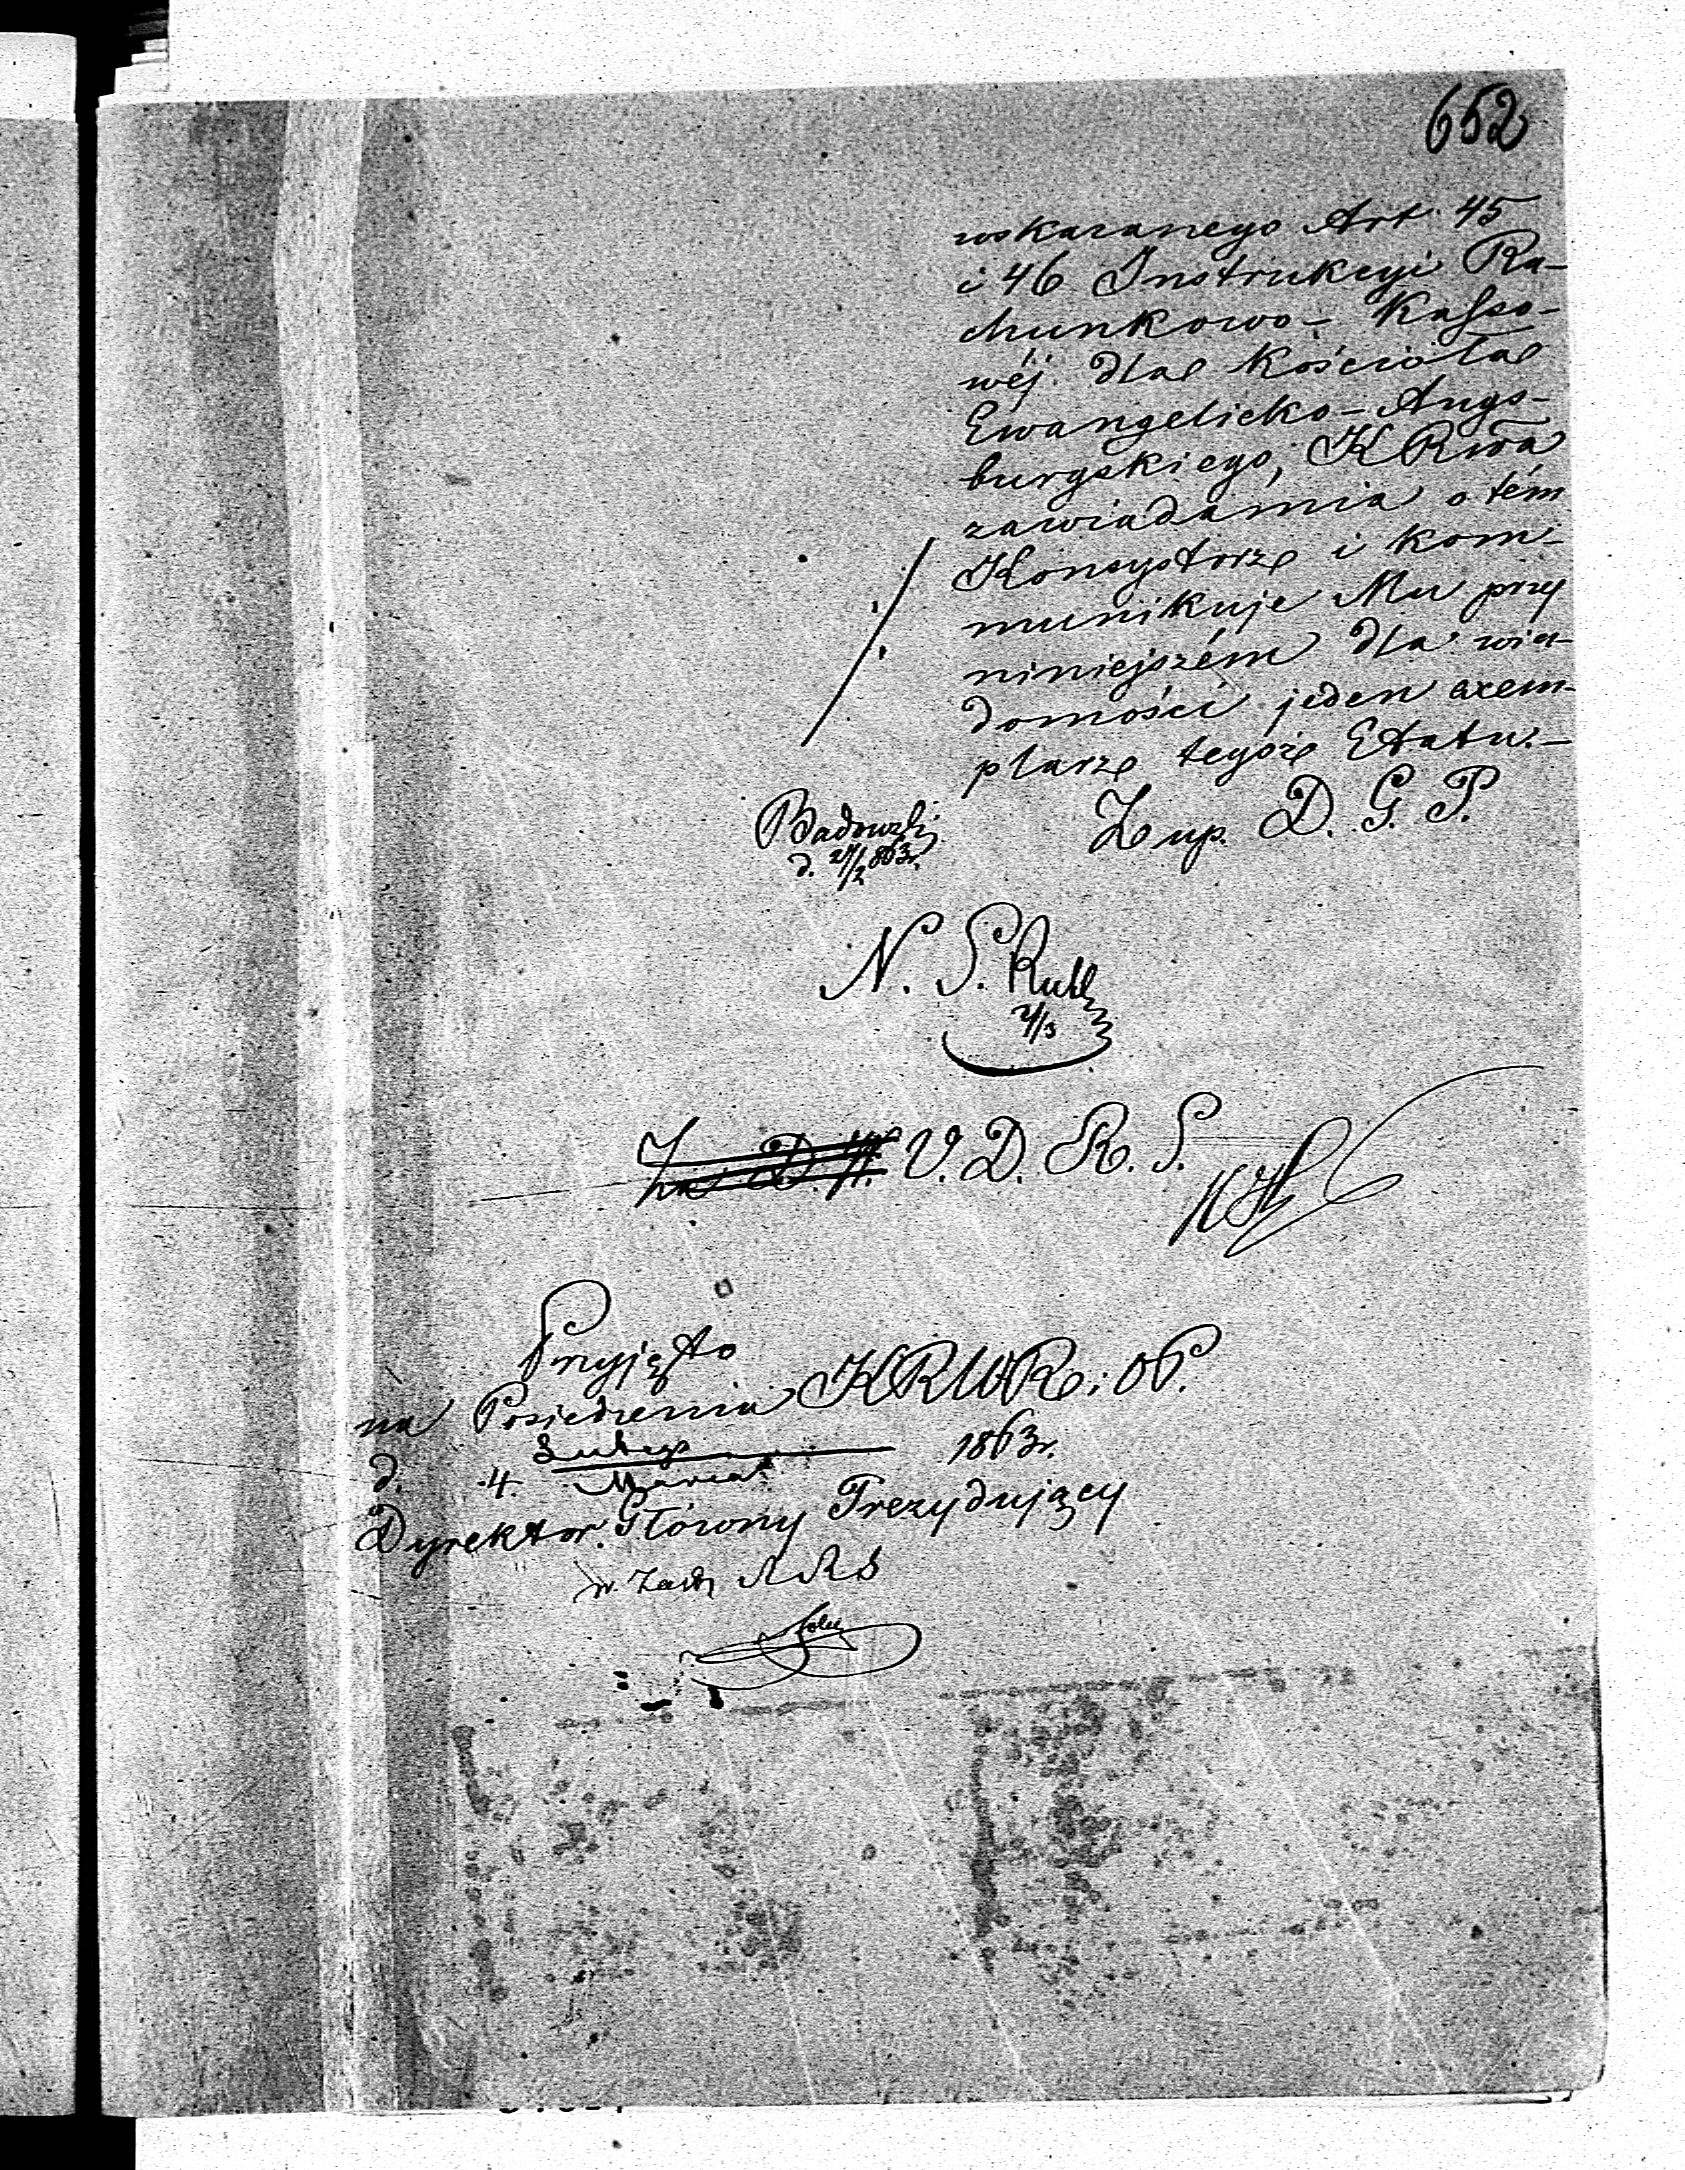 652
wskazanego Art. 45
i 46 Instrukcyi Ra-
chunkowo-Kasso-
wéj dla Kościoła
Ewangelicko-Augs-
burgskiego, KRwa
zawiadamia o tém
Konsystorz i kom-
munikuje Mu przy
niniejszém dla wia-
domości jeden exem-
plarz tegoż Etatu.-
Z up. D. G. P.
Badowski
d. 27/2 863r.
N. S. Ruhl
2/3
Za D. W. V. D. K. S.
Przyjęto
na Posiedzeniu KRWR i OP.
Lutego
d. 4. Marca 1863r.
Dyrektor Główny Prezydujący
w. Zast.